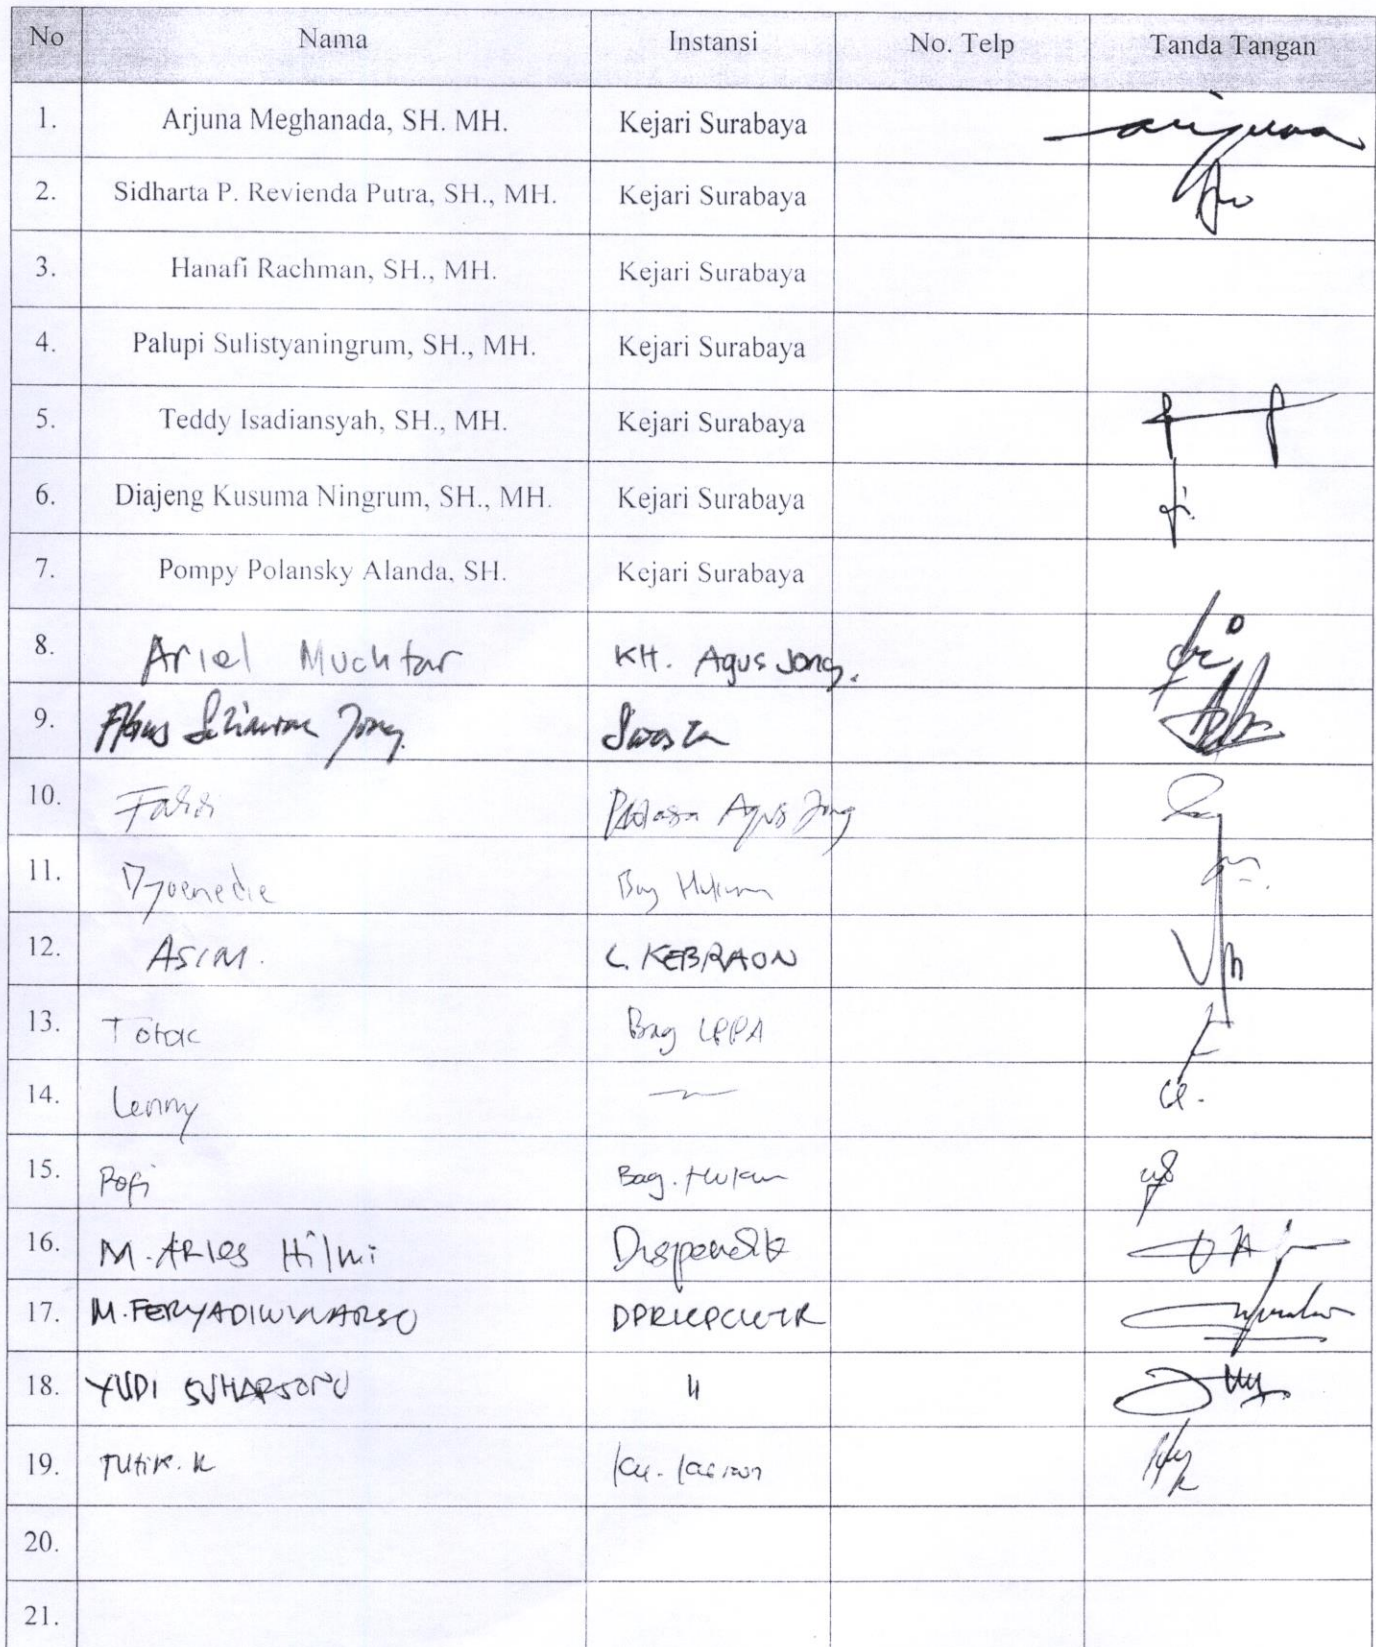 No Nama Instansi No. Telp Tanda Tangan
1. Arjuna Meghanada, SH. MH. Kejari Surabaya
2. Sidharta P. Revienda Putra, SH., MH. Kejari Surabaya
3. Hanafi Rachman, SH., MH. Kejari Surabaya
4. Palupi Sulistyaningrum, SH., MH. Kejari Surabaya
5. Teddy Isadiansyah, SH., MH. Kejari Surabaya
6. Diajeng Kusuma Ningrum, SH., MH. Kejari Surabaya
7. Pompy Polansky Alanda, SH. Kejari Surabaya
8. Ariel Muchtar KH. Agus Jong.
9. Jong.
10. Agus Jong
11. Djoenedie Bag Hukum
12. ASIM. L. KEBRAON
13. Totok Bag
14. Lenny
15. Bag. Hukum
16. M. ARIES Hilmi Dispendik
17. M. FERYADIWINARSO
18. YUDI SUHARSONO 11
19. TUtiK. K
20.
21.